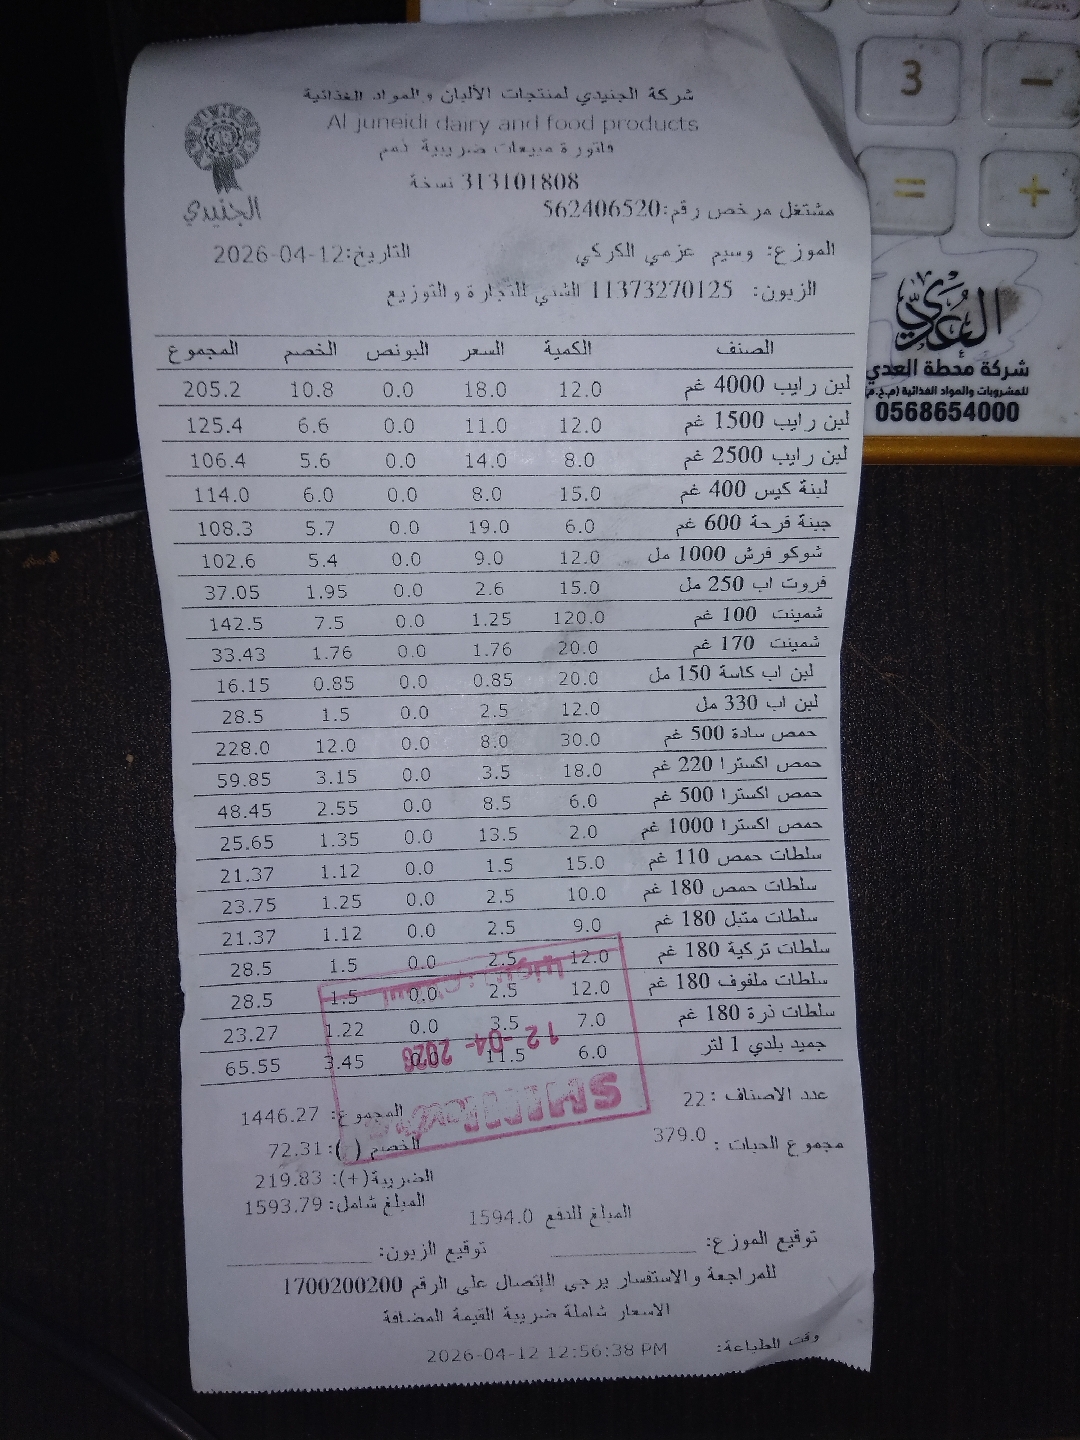 شركة الجنيدي لمنتجات الألبان والمواد الغذائية
Al juneidi dairy and food products
فاتورة مبيعات ضريبية ذمم
313101808 نسخة
الجنيدي
مشتغل مرخص رقم:562406520
الموزع: وسيم عزمي الكركي التاريخ:2026-04-12
الزبون: 11373270125 الشني للتجارة والتوزيع
الصنف الكمية السعر البونص الخصم المجموع
لبن رايب 4000 غم 12.0 18.0 0.0 10.8 205.2
لبن رايب 1500 غم 12.0 11.0 0.0 6.6 125.4
لبن رايب 2500 غم 8.0 14.0 0.0 5.6 106.4
لبنة كيس 400 غم 15.0 8.0 0.0 6.0 114.0
جبنة قرحة 600 غم 6.0 19.0 0.0 5.7 108.3
شوكو فرش 1000 مل 12.0 9.0 0.0 5.4 102.6
فروت اب 250 مل 15.0 2.6 0.0 1.95 37.05
شمينت 100 غم 120.0 1.25 0.0 7.5 142.5
شمينت 170 غم 20.0 1.76 0.0 1.76 33.43
لبن اب كاسة 150 مل 20.0 0.85 0.0 0.85 16.15
لبن اب 330 مل 12.0 2.5 0.0 1.5 28.5
حمص سادة 500 غم 30.0 8.0 0.0 12.0 228.0
حمص اكسترا 220 غم 18.0 3.5 0.0 3.15 59.85
حمص اكسترا 500 غم 6.0 8.5 0.0 2.55 48.45
حمص اكسترا 1000 غم 2.0 13.5 0.0 1.35 25.65
سلطات حمص 110 غم 15.0 1.5 0.0 1.12 21.37
سلطات حمص 180 غم 10.0 2.5 0.0 1.25 23.75
سلطات متبل 180 غم 9.0 2.5 0.0 1.12 21.37
سلطات تركية 180 غم 12.0 2.5 0.0 1.5 28.5
سلطات ملفوف 180 غم 12.0 2.5 0.0 1.5 28.5
سلطات ذرة 180 غم 7.0 3.5 0.0 1.22 23.27
جميد بلدي 1 لتر 6.0 11.5 0.0 3.45 65.55
12-04-2026
عدد الاصناف : 22 المجموع: 1446.27
مجموع الحبات : 379.0 الخصم ( ): 72.31
الضريبة(+): 219.83
المبلغ شامل: 1593.79
المبلغ للدفع 1594.0
توقيع الموزع: توقيع الزبون:
للمراجعة والاستفسار يرجى الإتصال على الرقم 1700200200
الاسعار شاملة ضريبة القيمة المضافة
وقت الطباعة: 2026-04-12 12:56:38 PM
3
−
=
+
العدي
شركة محطة العدي
للمشروبات والمواد الغذائية (م.خ.م)
0568654000